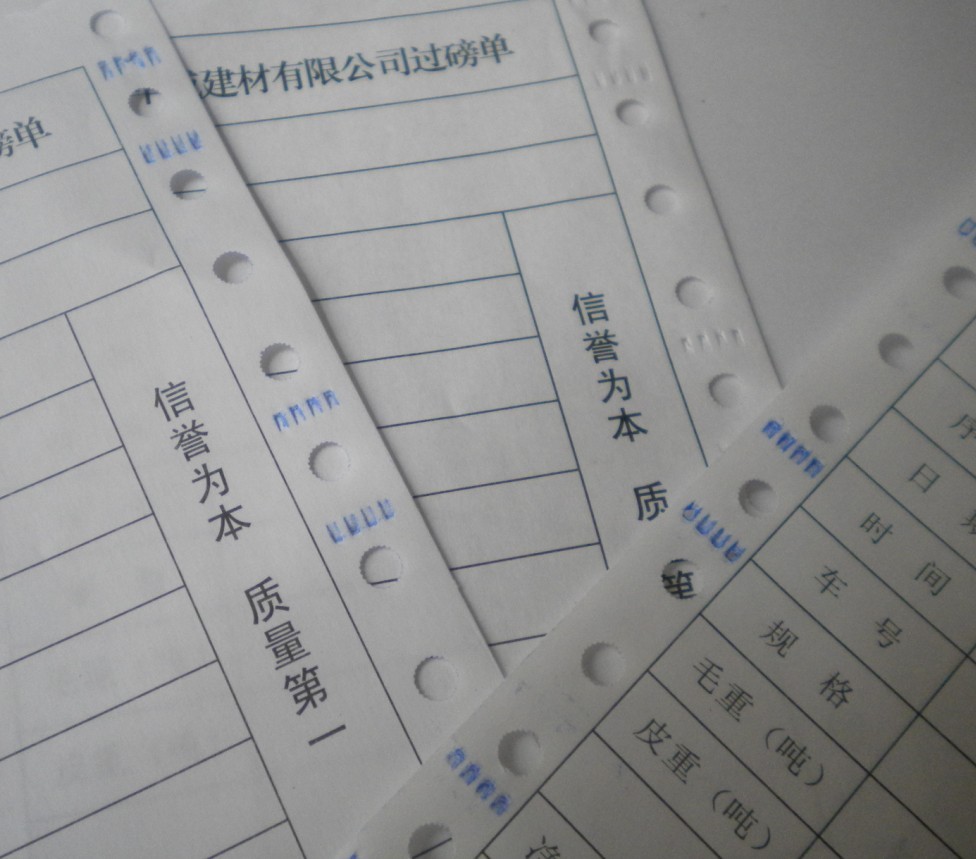 磅单
建材有限公司过磅单
信誉为本 质量第一
信誉为本 质
序
日
时间
车号
规格
毛重（吨）
皮重（吨）
净